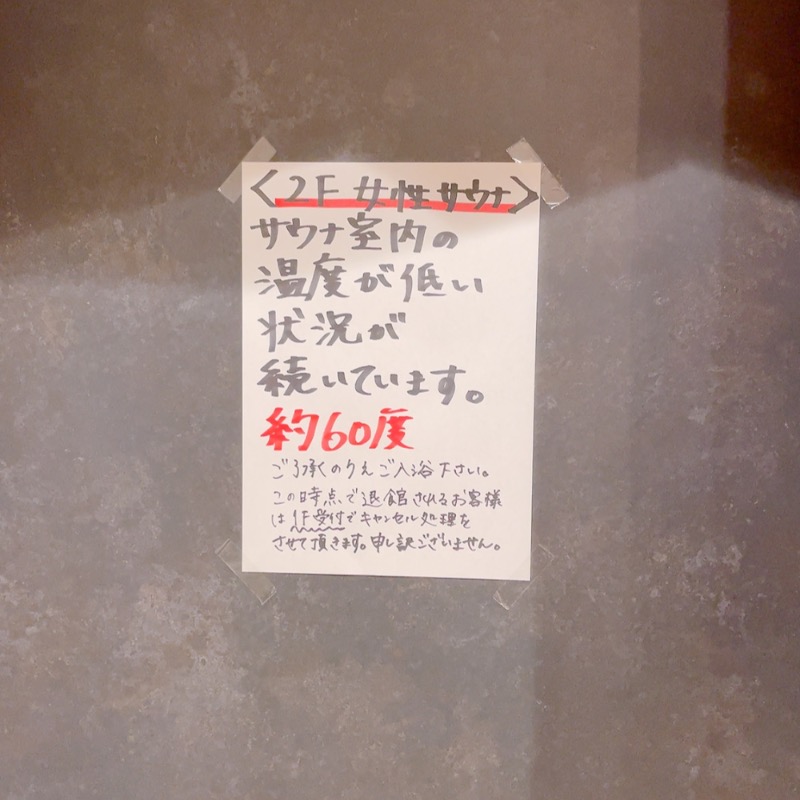 〈2F 女性サウナ〉
サウナ室内の
温度が低い
状況が
続いています。
約60度
ご了承のうえご入浴下さい。
この時点で退館されるお客様
は1F受付でキャンセル処理を
させて頂きます。申し訳ございません。